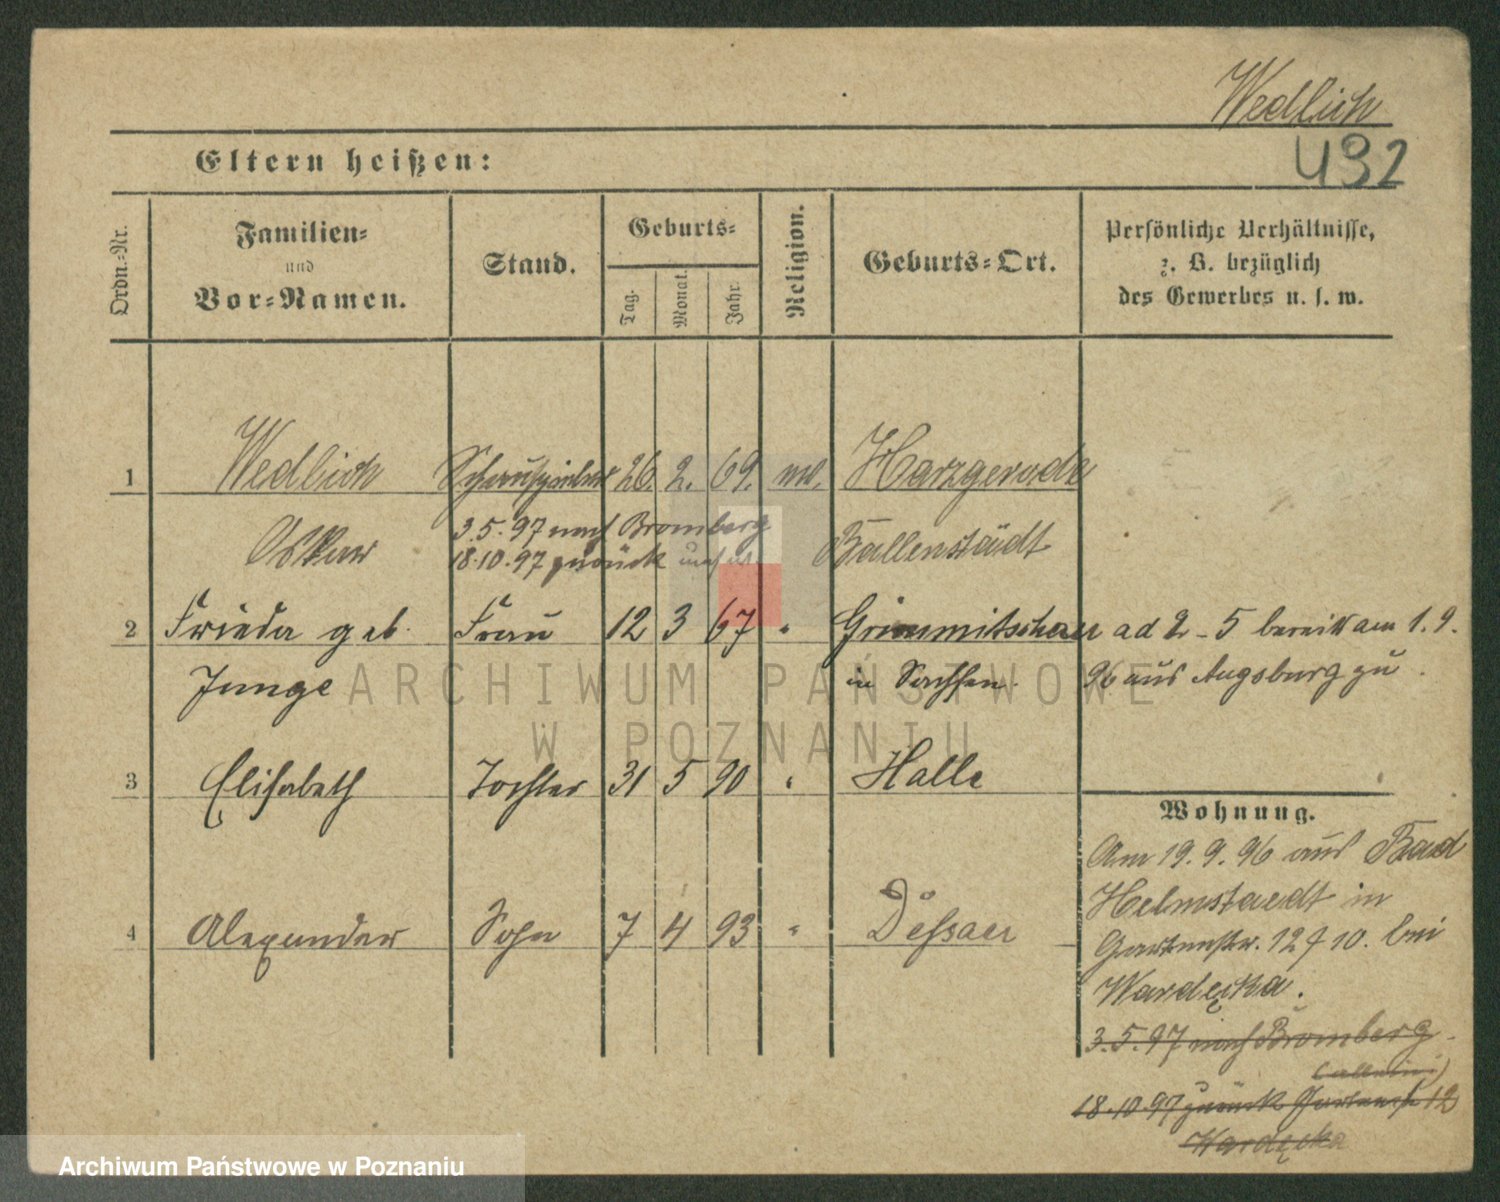 Wedlich
432
Eltern heißen:
Ordn.-Nr.
Familien-
und
Vor-Namen.
Stand.
Geburts-
Tag.
Monat.
Jahr.
Religion.
Geburts-Ort.
Persönliche Verhältnisse,
z. B. bezüglich
des Gewerbes u. s. w.
1 Wedlich Schauspieler 26. 2. 69. Harzgerode
Oskar
3.5.97 nach Bromberg
18.10.97 zurück
Ballenstädt
2 Frieda geb. Frau 12 3 67 " Crimmitschau ad 2-5 bereits am 1.9.
Junge in Sachsen. 96 aus Augsburg zu
3 Elisabeth Tochter 31 5 90 " Halle
4 Alexander Sohn 7 4 93 " Dessau
Wohnung.
Am 19.9.96 aus Bad
Helmstaedt in
Gartenstr. 12 10. bei
Wardęcka.
3.5.97 nach Bromberg
18.10.97 zurück Gartenstr 12
Wardęcka
ARCHIWUM PAŃSTWOWE
W POZNANIU
Archiwum Państwowe w Poznaniu